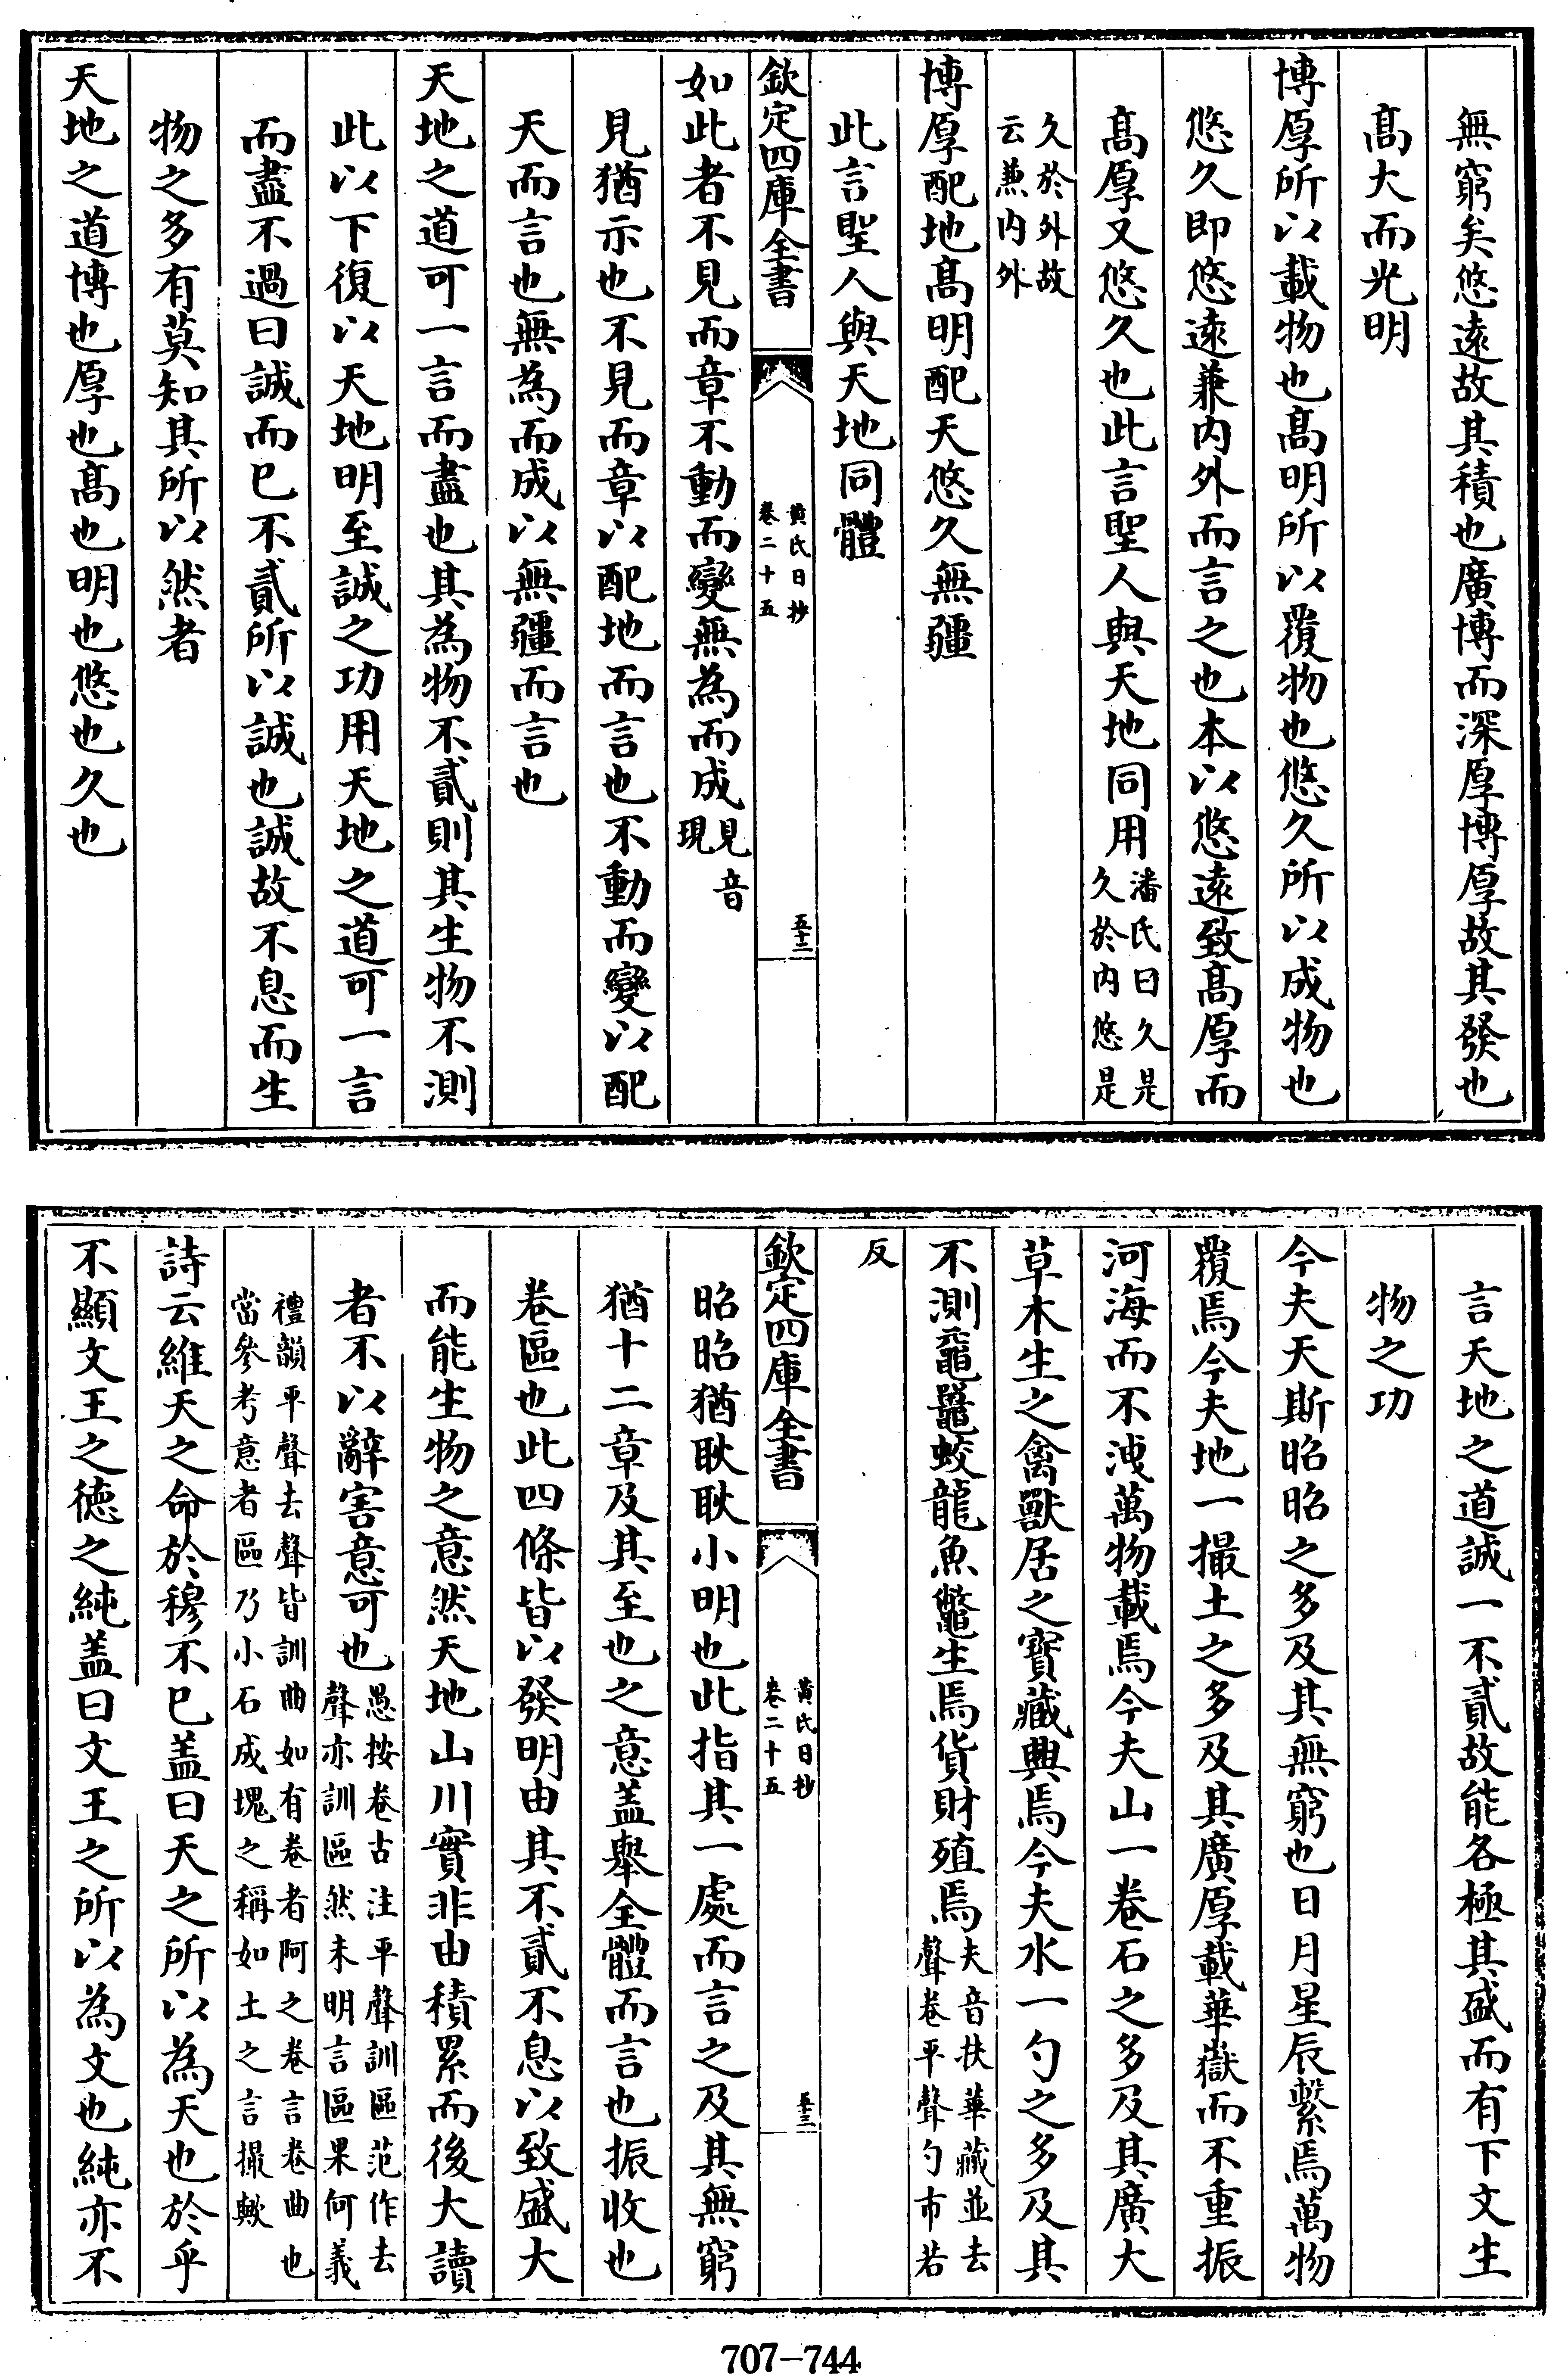 無窮矣悠遠故其積也廣博而深厚博厚故其發也
髙大而光明
博厚所以載物也髙明所以覆物也悠久所以成物也
悠久即悠遠兼内外而言之也本以悠遠致髙厚而
髙厚又悠久也此言聖人與天地同用潘氏曰久是久於内悠是
久於外故云兼内外
博厚配地髙明配天悠久無疆
此言聖人與天地同體
欽定四庫全書
黄氏日抄
卷二十五
五十二
如此者不見而章不動而變無為而成見音現
見猶示也不見而章以配地而言也不動而變以配
天而言也無為而成以無疆而言也
天地之道可一言而盡也其為物不貳則其生物不測
此以下復以天地明至誠之功用天地之道可一言
而盡不過曰誠而已不貳所以誠也誠故不息而生
物之多有莫知其所以然者
天地之道博也厚也髙也明也悠也久也
言天地之道誠一不貳故能各極其盛而有下文生
物之功
今夫天斯昭昭之多及其無窮也日月星辰繫焉萬物
覆焉今夫地一撮土之多及其廣厚載華嶽而不重振
河海而不洩萬物載焉今夫山一卷石之多及其廣大
草木生之禽獸居之寶藏興焉今夫水一勺之多及其
不測黿鼉蛟龍魚鼈生焉貨財殖焉夫音扶華藏並去聲卷平聲勺市若
反
欽定四庫全書
黄氏日抄
卷二十五
五十三
昭昭猶耿耿小明也此指其一處而言之及其無窮
猶十二章及其至也之意盖舉全體而言也振收也
卷區也此四條皆以發明由其不貳不息以致盛大
而能生物之意然天地山川實非由積累而後大讀
者不以辭害意可也愚按卷古注平聲訓區范作去聲亦訓區然未明言區果何義
禮韻平聲去聲皆訓曲如有卷者阿之卷言卷曲也當參考意者區乃小石成塊之稱如土之言撮歟
詩云維天之命於穆不已盖曰天之所以為天也於乎
不顯文王之德之純盖曰文王之所以為文也純亦不
707-744